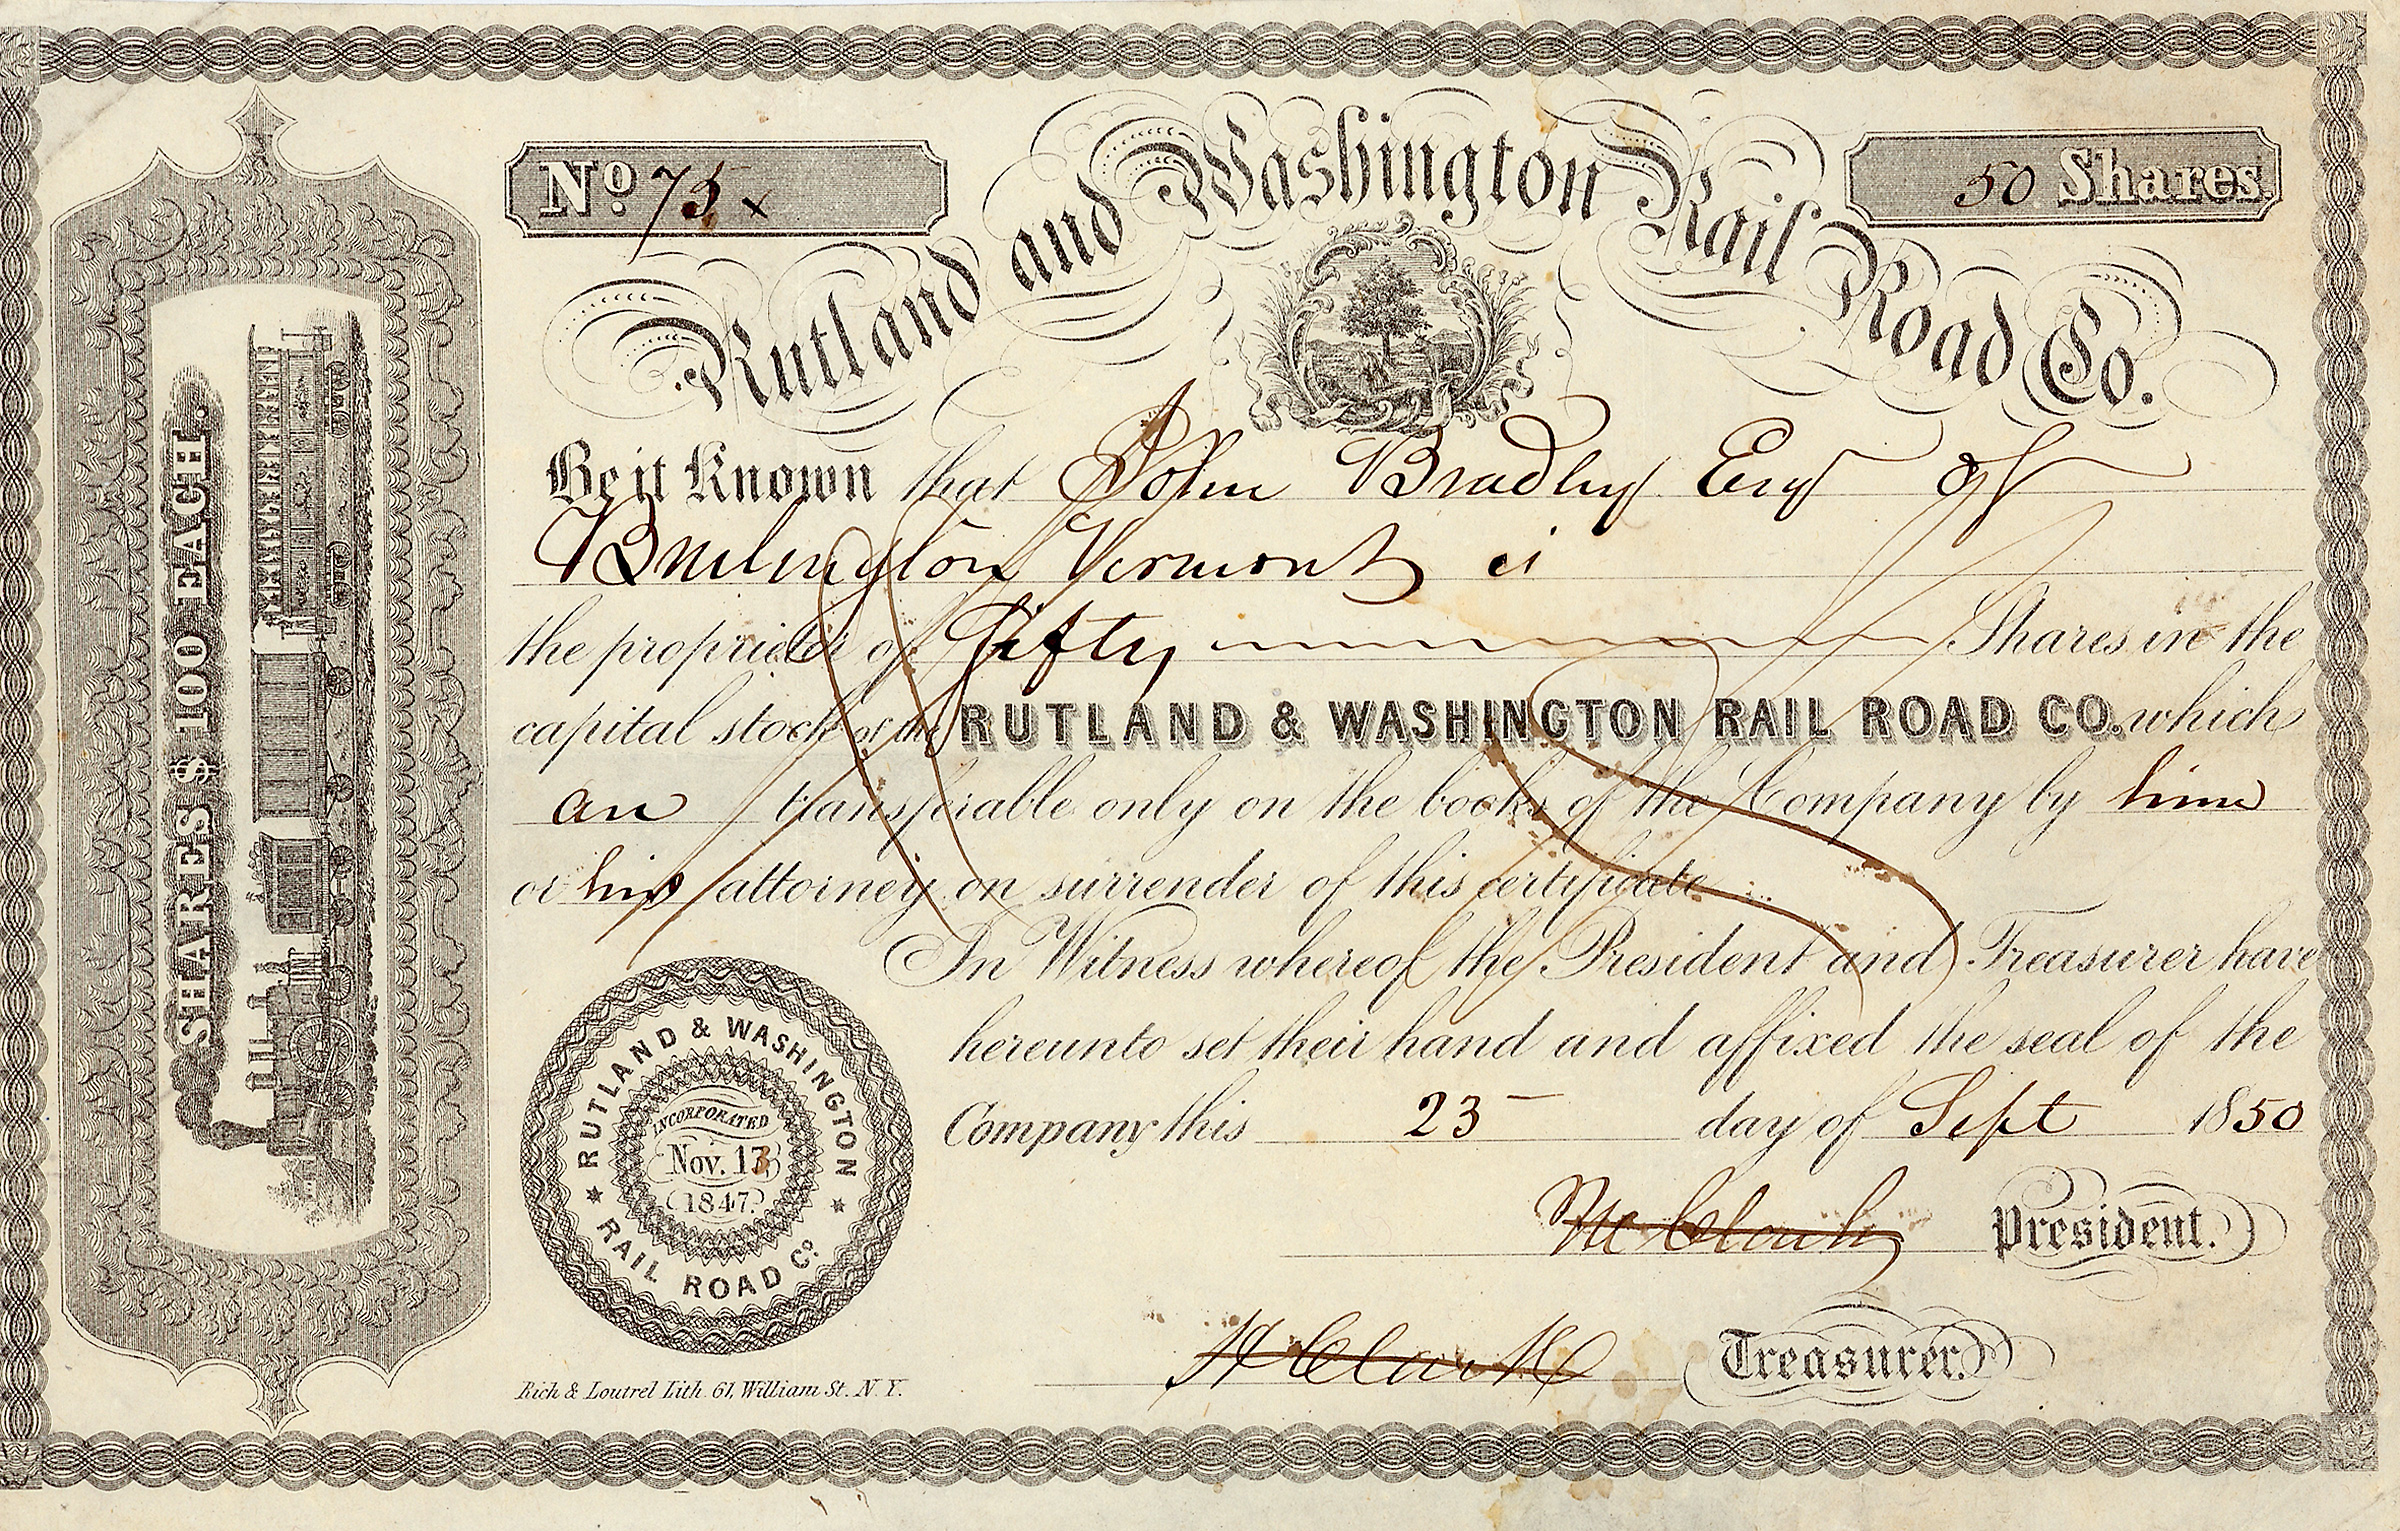 No. 75 x
50 Shares.
Rutland and Washington Rail Road Co.
SHARES $100 EACH.
Be it Known that John Bradley Esq of
Burlington Vermont is
the proprietor of Fifty Shares in the
capital stock of the RUTLAND & WASHINGTON RAIL ROAD CO. which
are transferable only on the books of the Company by him
or his attorney on surrender of this certificate.
In Witness whereof the President and Treasurer have
hereunto set their hand and affixed the seal of the
Company this 23 day of Sept 1850
President.
Clark Treasurer.
RUTLAND & WASHINGTON
RAIL ROAD Co.
INCORPORATED
Nov. 13
1847.
Rich & Loutrel Lith. 61, William St. N.Y.